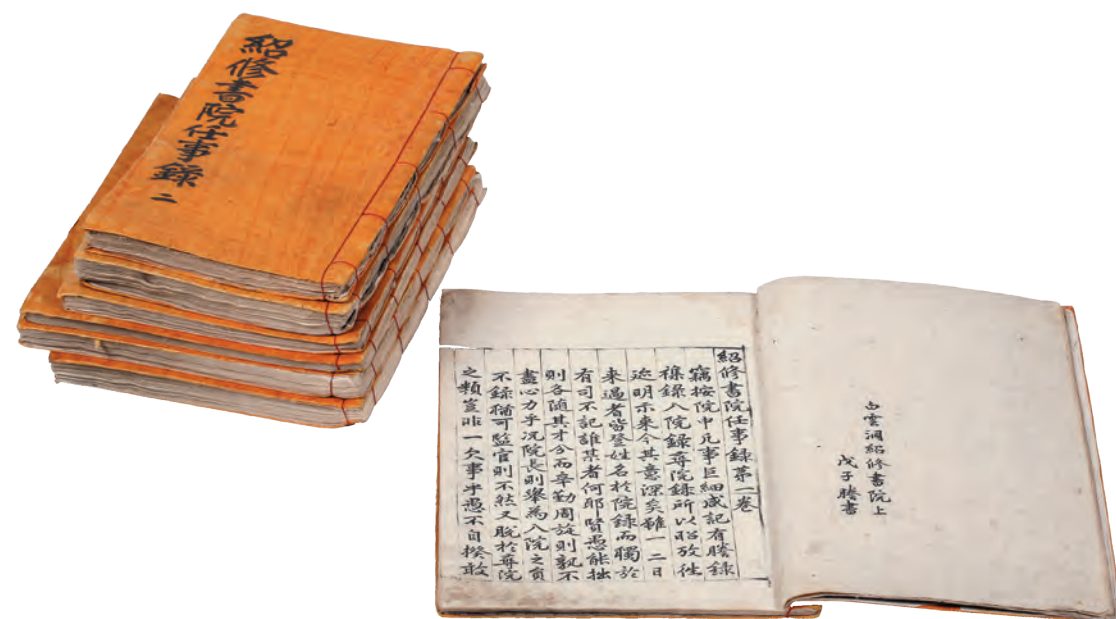 紹修書院任事錄 二
白雲洞紹修書院上
戊子謄書
紹修書院任事錄第一卷
竊按院中凡事巨細咸記有謄錄
襍錄入院錄尋院錄所以昭攷徃
迹明示来今其意深矣雖一二日
来過者皆登姓名於院錄而獨於
有司不記誰某者何耶賢愚能拙
則各随其才分而辛勤周旋則孰不
盡心力乎况院長則舉為入院之員
不錄猶可監官則不然又脫於尋院
之類豈非一欠事乎愚不自揆敢